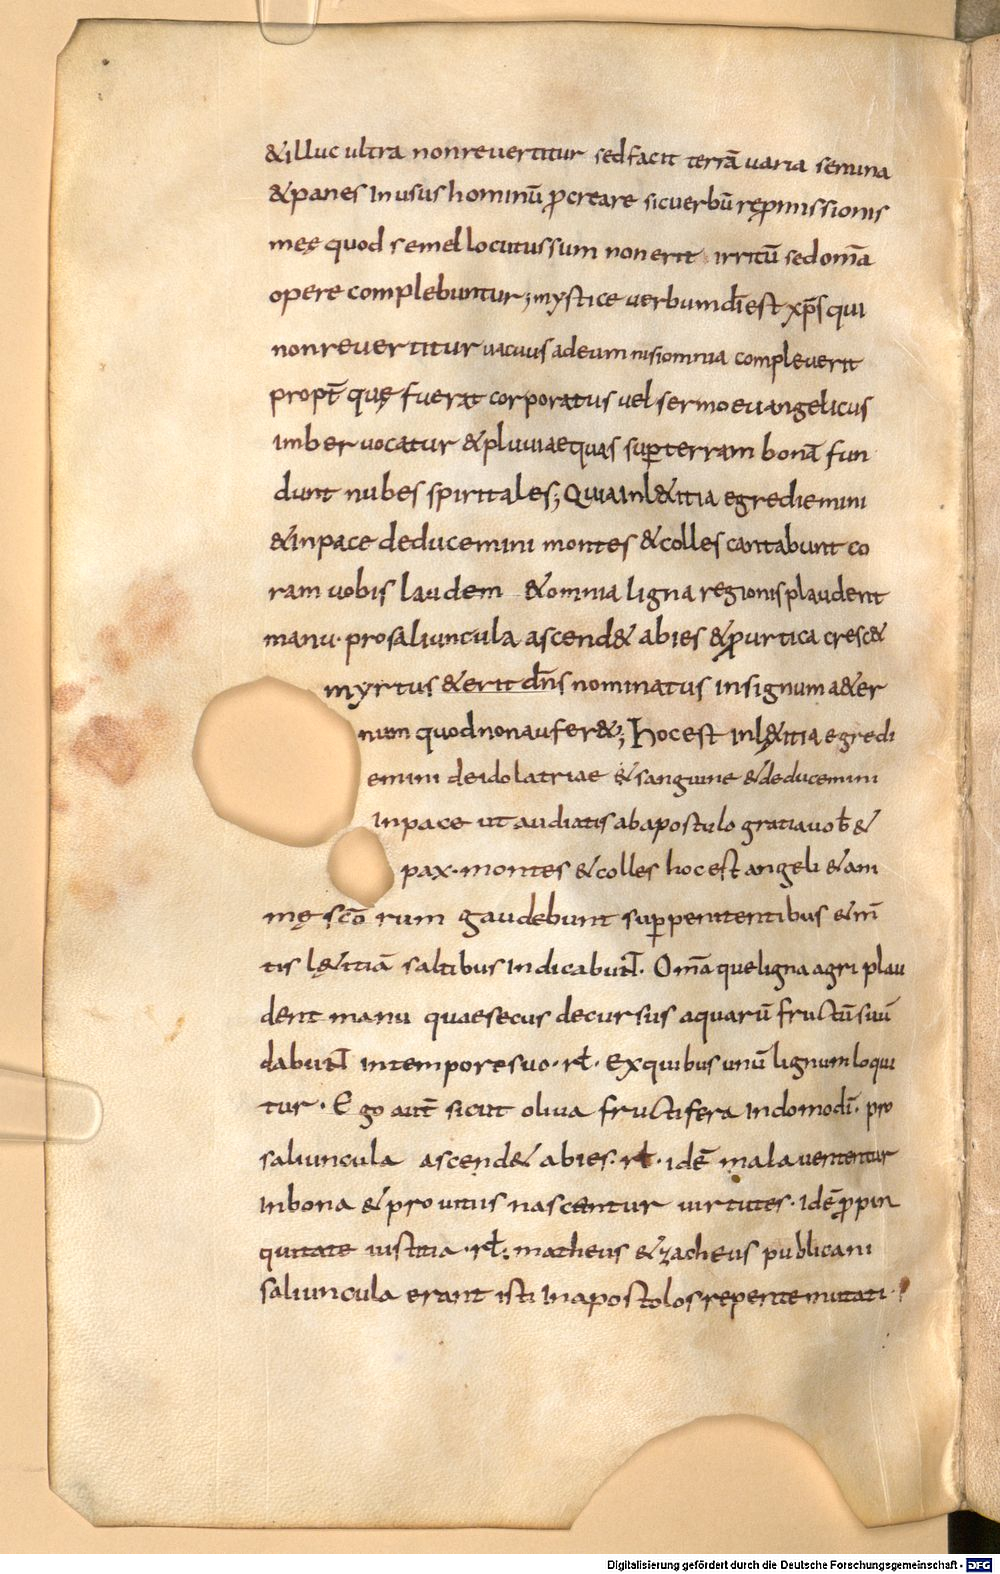 &illuc ultra nonreuertitur sedfacit terrā uaria semina
&panes Inusus hominū ꝓcreare sicuerbū reꝓmissionis
meę quod semel locutussum nonerit irritū sed om̄a
opere complebuntur; mystice uerbum dī est xp̄s qui
nonreuertitur uacuus adeum nisiomnia compleuerit
propt̄ quę fuerat corporatus uel sermo euangelicus
imber uocatur &pluuiaequas suꝑterram bonā fun
dunt nubes spiritales; QuiaInl&itia egrediemini
&inpace deducemini montes &colles cantabunt co
ram uobis laudem &omnia ligna regionisplaudent
manu· prosaliuncula ascend& abies &ꝓurtica cresc&
myrtus &erit dn̄s nominatus insignum a&er
num quodnonaufer&; Hocest inlę&itia egredi
emini deidolatriae &sanguine &deducemini
Inpace ut audiatis abapostolo gratiauob̄ &
pax· montes &colles hocest angeli &ani
mę scō rum gaudebunt suꝑpenitentibus &m̄
tis lę&itiā saltibus Indicabunt. Om̄a queligna agri plau
dent manu quaesecus decursus aquarū fructūsuū
dabunt Intemporesuo· rł· Exquibus unū lignumloqui
tur· Ego aut̄ sicut oliua fructifera Indomodī· pro
saliuncula ascend& abies· rł· idē malauertentur
Inbona &pro uitiis nascentur uirtutes· Idē ꝓpin
quitate iustitia· rł; matheus &zacheus publicani
saliuncula erant isti Inapostolosrepentemutati·
Digitalisierung gefördert durch die Deutsche Forschungsgemeinschaft - DFG